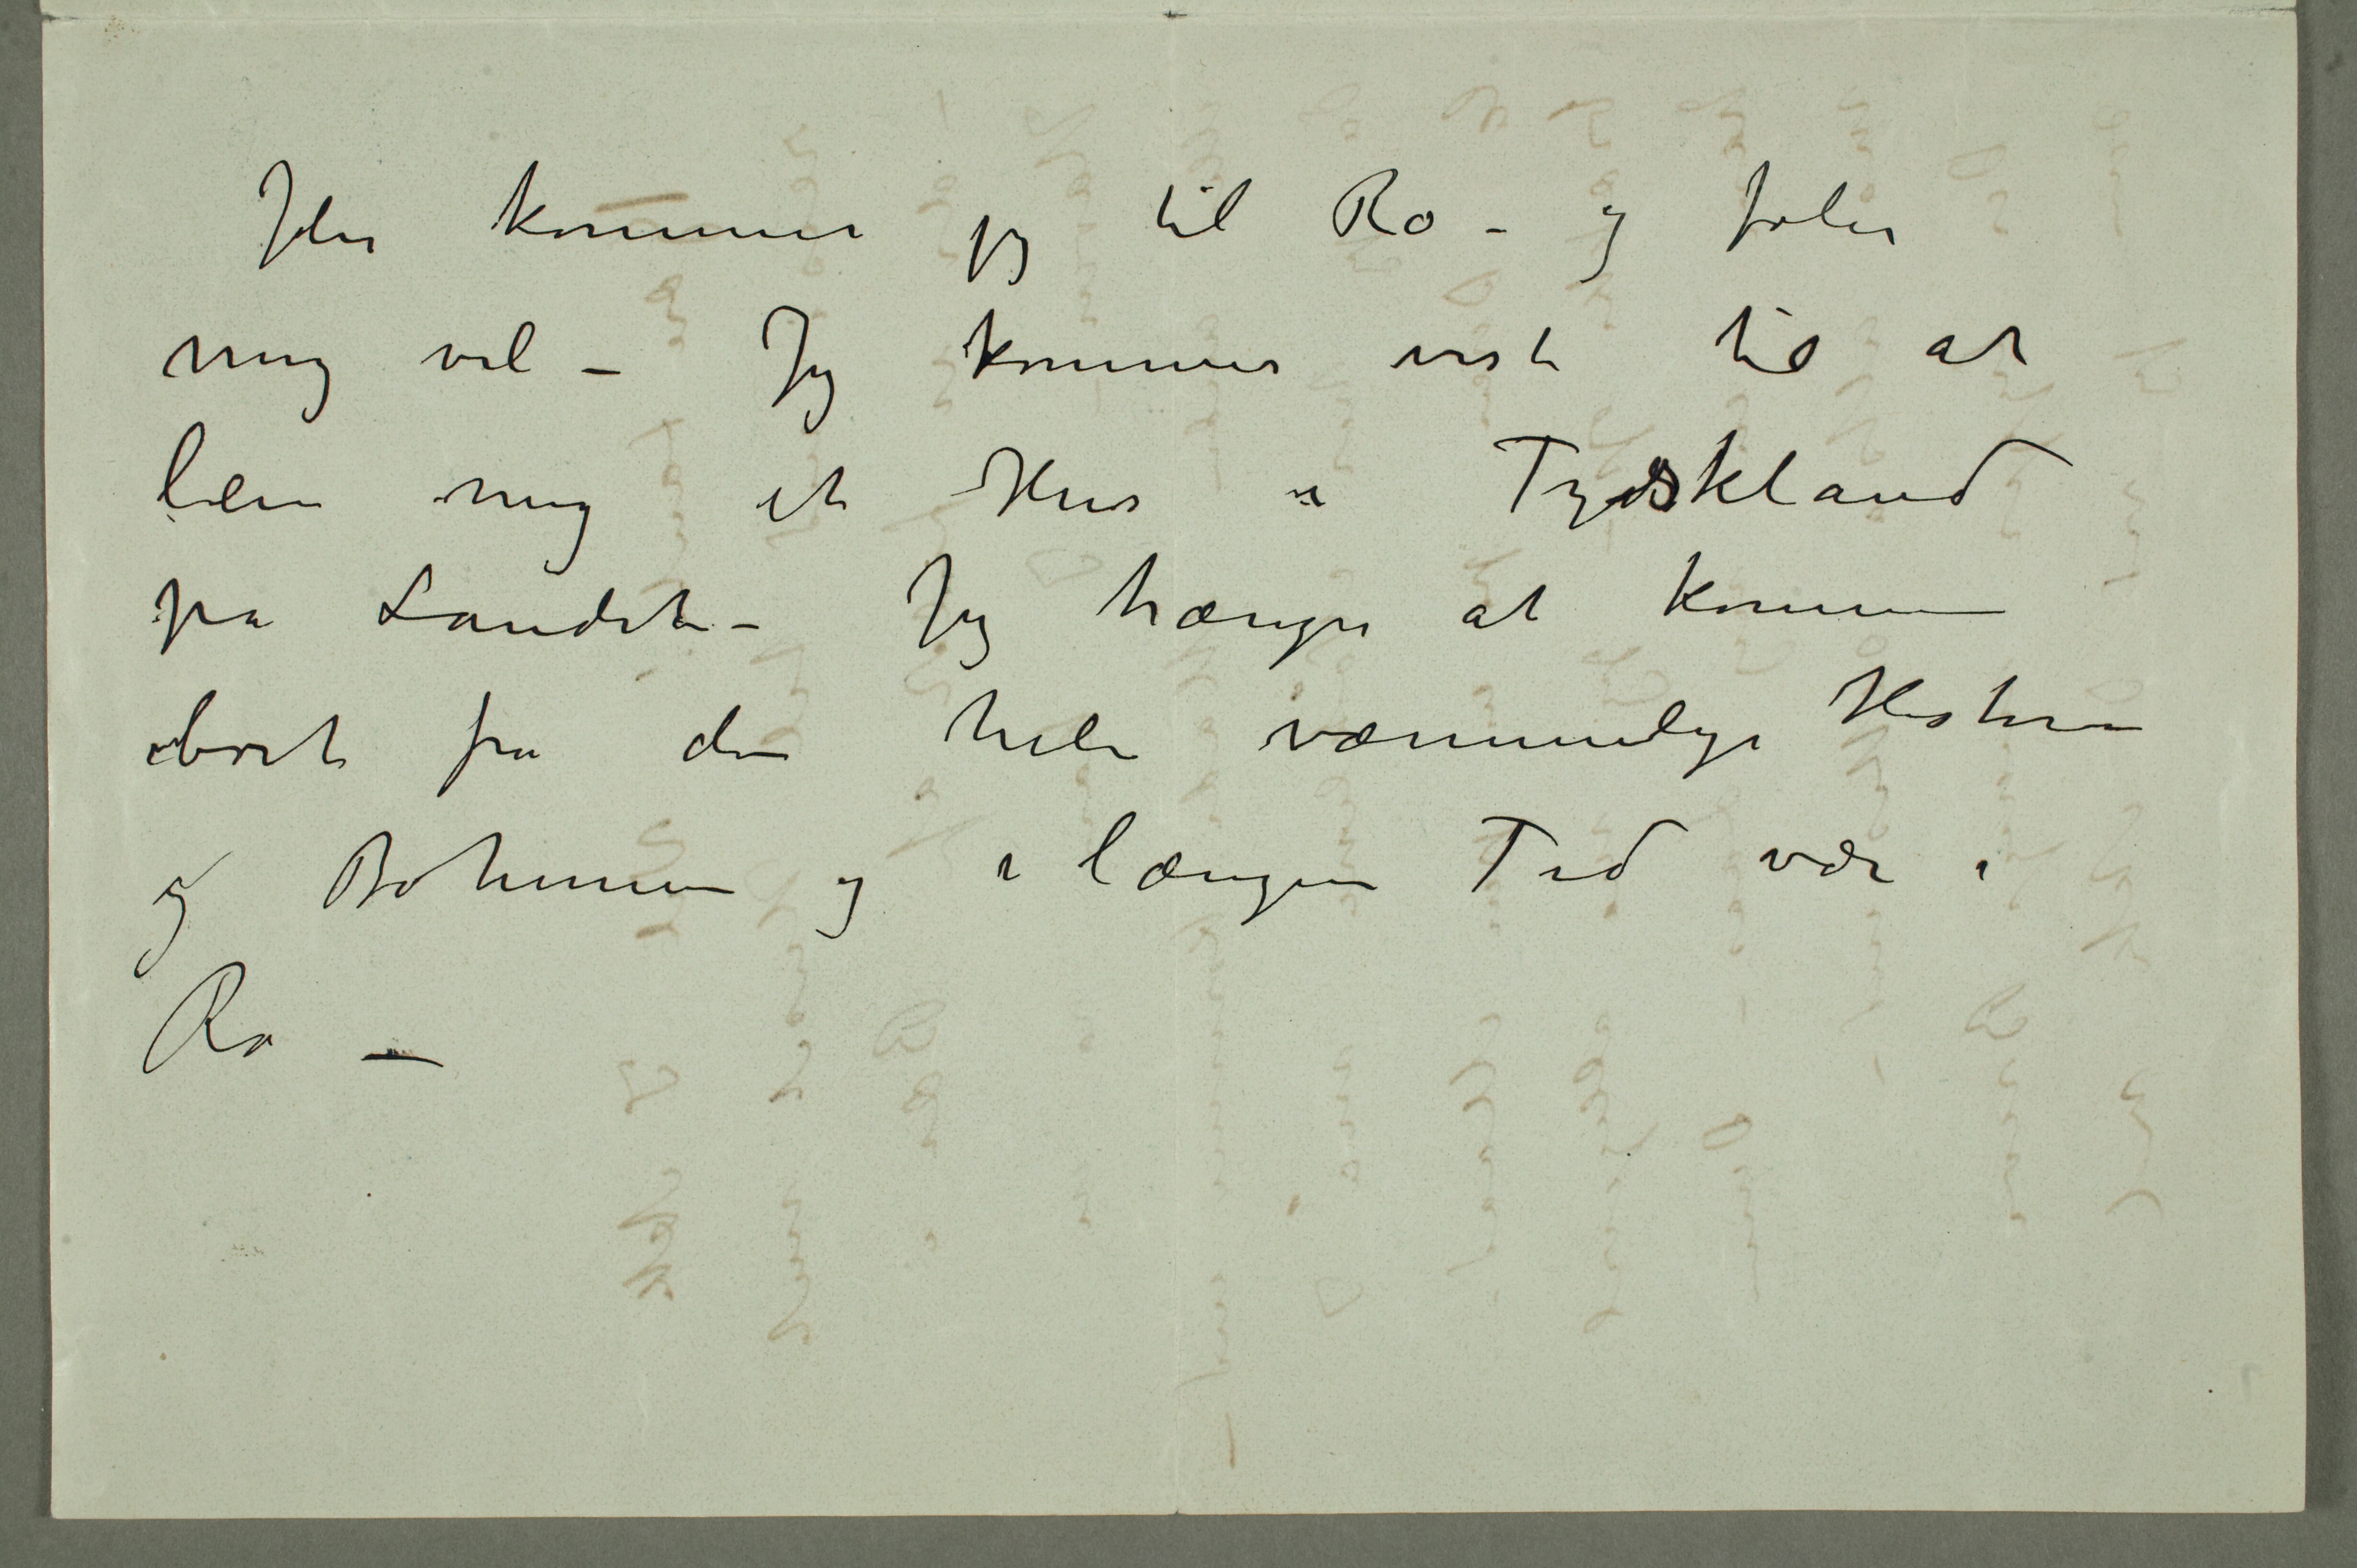 Her kommer jeg til Ro – og føler
mig vel – Jeg kommer vist til at
leie mig et Hus i Tyskland
på Landet – Jeg trænger at komme
bort fra den hele væmmelige Historie
og Bohemen og i længere Tid være i
Ro –